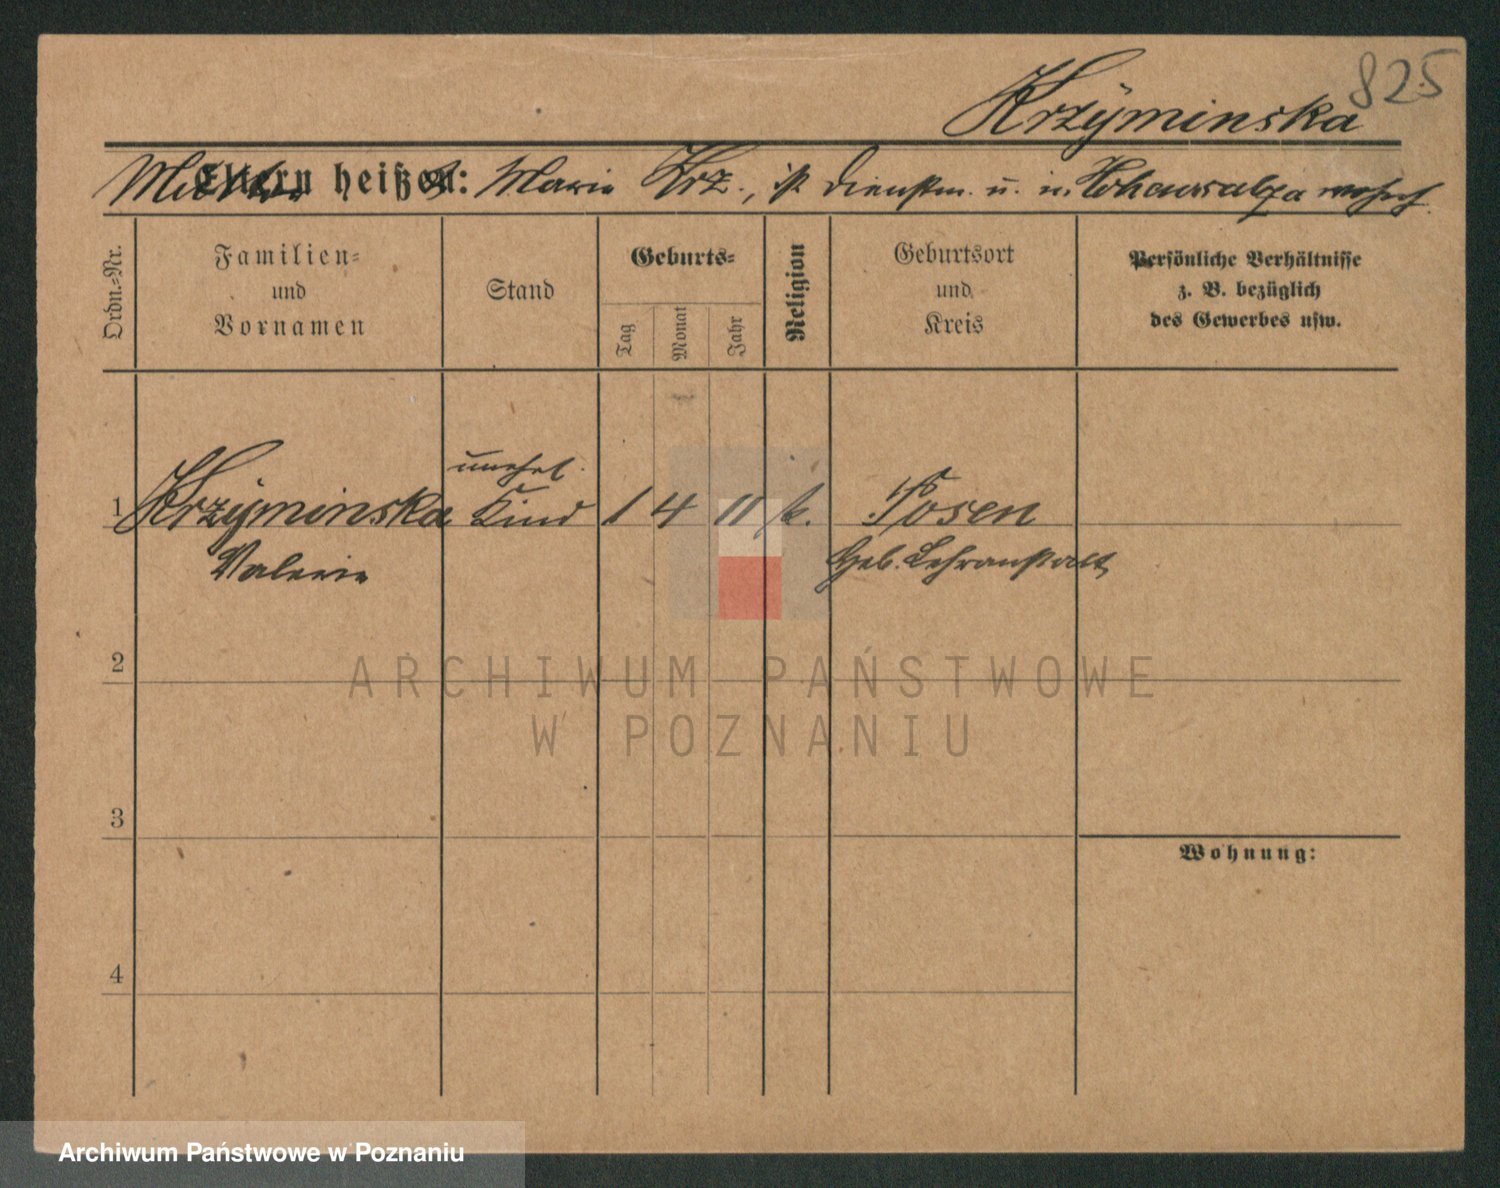 825
Krzyminska
Mutter heißt: Marie Krz., ist Dienstm. u. in Hohensalza wohnh.
Ordn.-Nr.
Familien-
und
Vornamen
Stand
Geburts-
Tag
Monat
Jahr
Religion
Geburtsort
und
Kreis
Persönliche Verhältnisse
z. B. bezüglich
des Gewerbes usw.
unehel.
1 Krzyminska Kind 1 4 11 k. Posen
Valerie Heb. Lehranstalt
2
ARCHIWUM PAŃSTWOWE
W POZNANIU
3
Wohnung:
4
Archiwum Państwowe w Poznaniu